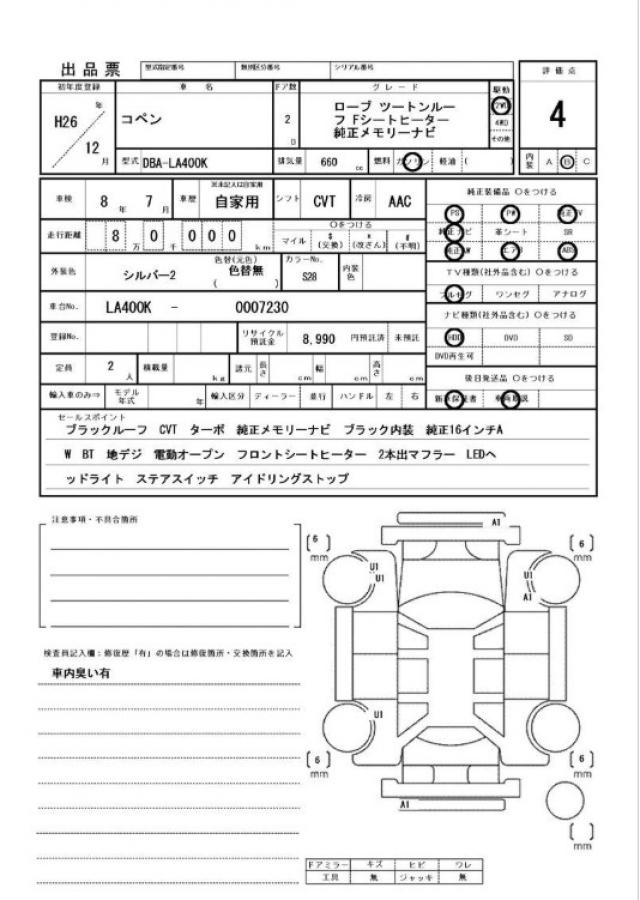 出品票 型式指定番号 類別区分番号 シリアル番号
評価点
初年度登録 車名 ドア数 グレード 駆動
H26 年 12 月
コペン
2 D
ローブ ツートンルー
フ Fシートヒーター
純正メモリーナビ
2WD
4WD
その他
4
型式 DBA-LA400K 排気量 660 cc 燃料 ガソリン 軽油 ( )
内装 A B C
車検 8 年 7 月 車歴 ※未記入は自家用 自家用 シフト CVT 冷房 AAC
純正装備品 Oをつける
PS PW 純正TV
純正ナビ 革シート SR
純正AW エアB ABS
走行距離 8 万 0 千 0 0 0 km
Oをつける
マイル $ (交換) * (改ざん) # (不明)
外装色 シルバー2 色替(元色) ( 色替無 ) カラーNo. S28 内装色
TV種類(社外品含む) Oをつける
フルセグ ワンセグ アナログ
車台No. LA400K - 0007230
ナビ種類(社外品含む) Oをつける
HDD DVD SD
DVD再生可
登録No. リサイクル預託金 8,990 円預託済 未預託
定員 2 人 積載量 kg 諸元 長さ cm 幅 cm 高さ cm
後日発送品 Oをつける
新車保証書 車両取説
輸入車のみ⇒ モデル年式 年 輸入区分 ディーラー 並行 ハンドル 左 右
セールスポイント
ブラックルーフ CVT ターボ 純正メモリーナビ ブラック内装 純正16インチA
W BT 地デジ 電動オープン フロントシートヒーター 2本出マフラー LEDヘ
ッドライト ステアスイッチ アイドリングストップ
注意事項・不具合箇所
検査員記入欄:修復歴「有」の場合は修復箇所・交換箇所を記入
車内臭い有
A1
[ 6 ] mm
[ 6 ] mm
U1
U1
U1
A1
U1
[ 6 ] mm
[ 6 ] mm
A1
[ ] mm
Fアミラー キズ ヒビ ワレ
工具 無 ジャッキ 無